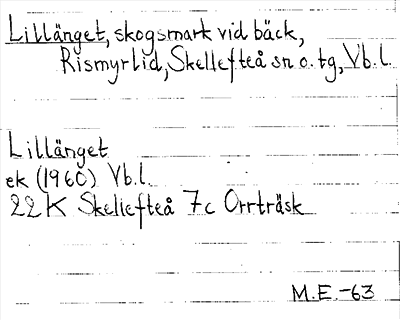 Lillänget, skogsmark vid bäck,
Rismyrlid, Skellefteå sn o. tg, Vb. l.
Lillänget
ek (1960) Vb. l.
22 K Skellefteå 7c Orrträsk
M.E.-63